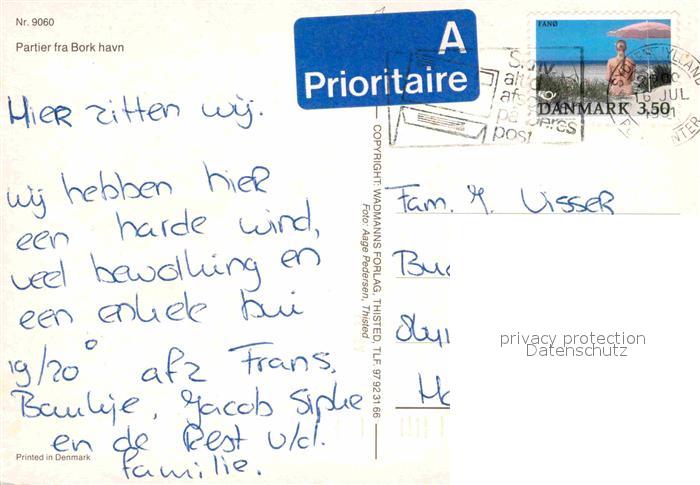 Nr. 9060
Partier fra Bork havn
A
Prioritaire
FANØ
DANMARK 3,50
Skriv
post
JUL
Hier zitten wij.
wij hebben hier
een harde wind,
veel bewolking en
een enkele bui
19/20° afz Frans,
Baukje, Jacob Sipke
en de Rest v/d.
familie.
Printed in Denmark
COPYRIGHT: WADMANNS FORLAG, THISTED, TLF. 97 92 31 66
Foto: Aage Pedersen, Thisted
Fam. Y. Visser
privacy protection
Datenschutz